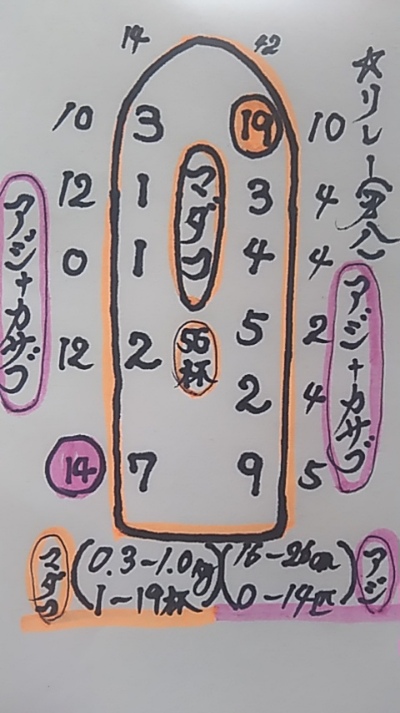 14 42
☆リレー実釣
10 3 19 10
12 1 マダコ 3 4
0 1 4 4
12 2 56杯 5 2
2 4
14 7 9 5
アジ+カサゴ
アジ+カサゴ
マダコ (0.3-1.0kg) (16-26cm) アジ
1-19杯 0-14匹